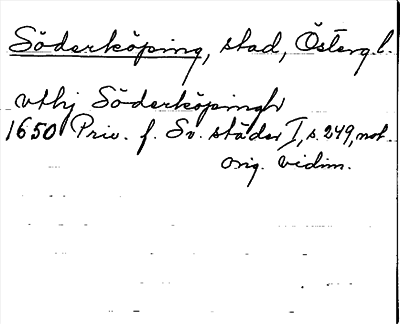 Söderköping, stad, Österg.l.
vthj Söderköpingh
1650 Priv. f. Sv. städer I, s. 249, not.
orig. vidim.